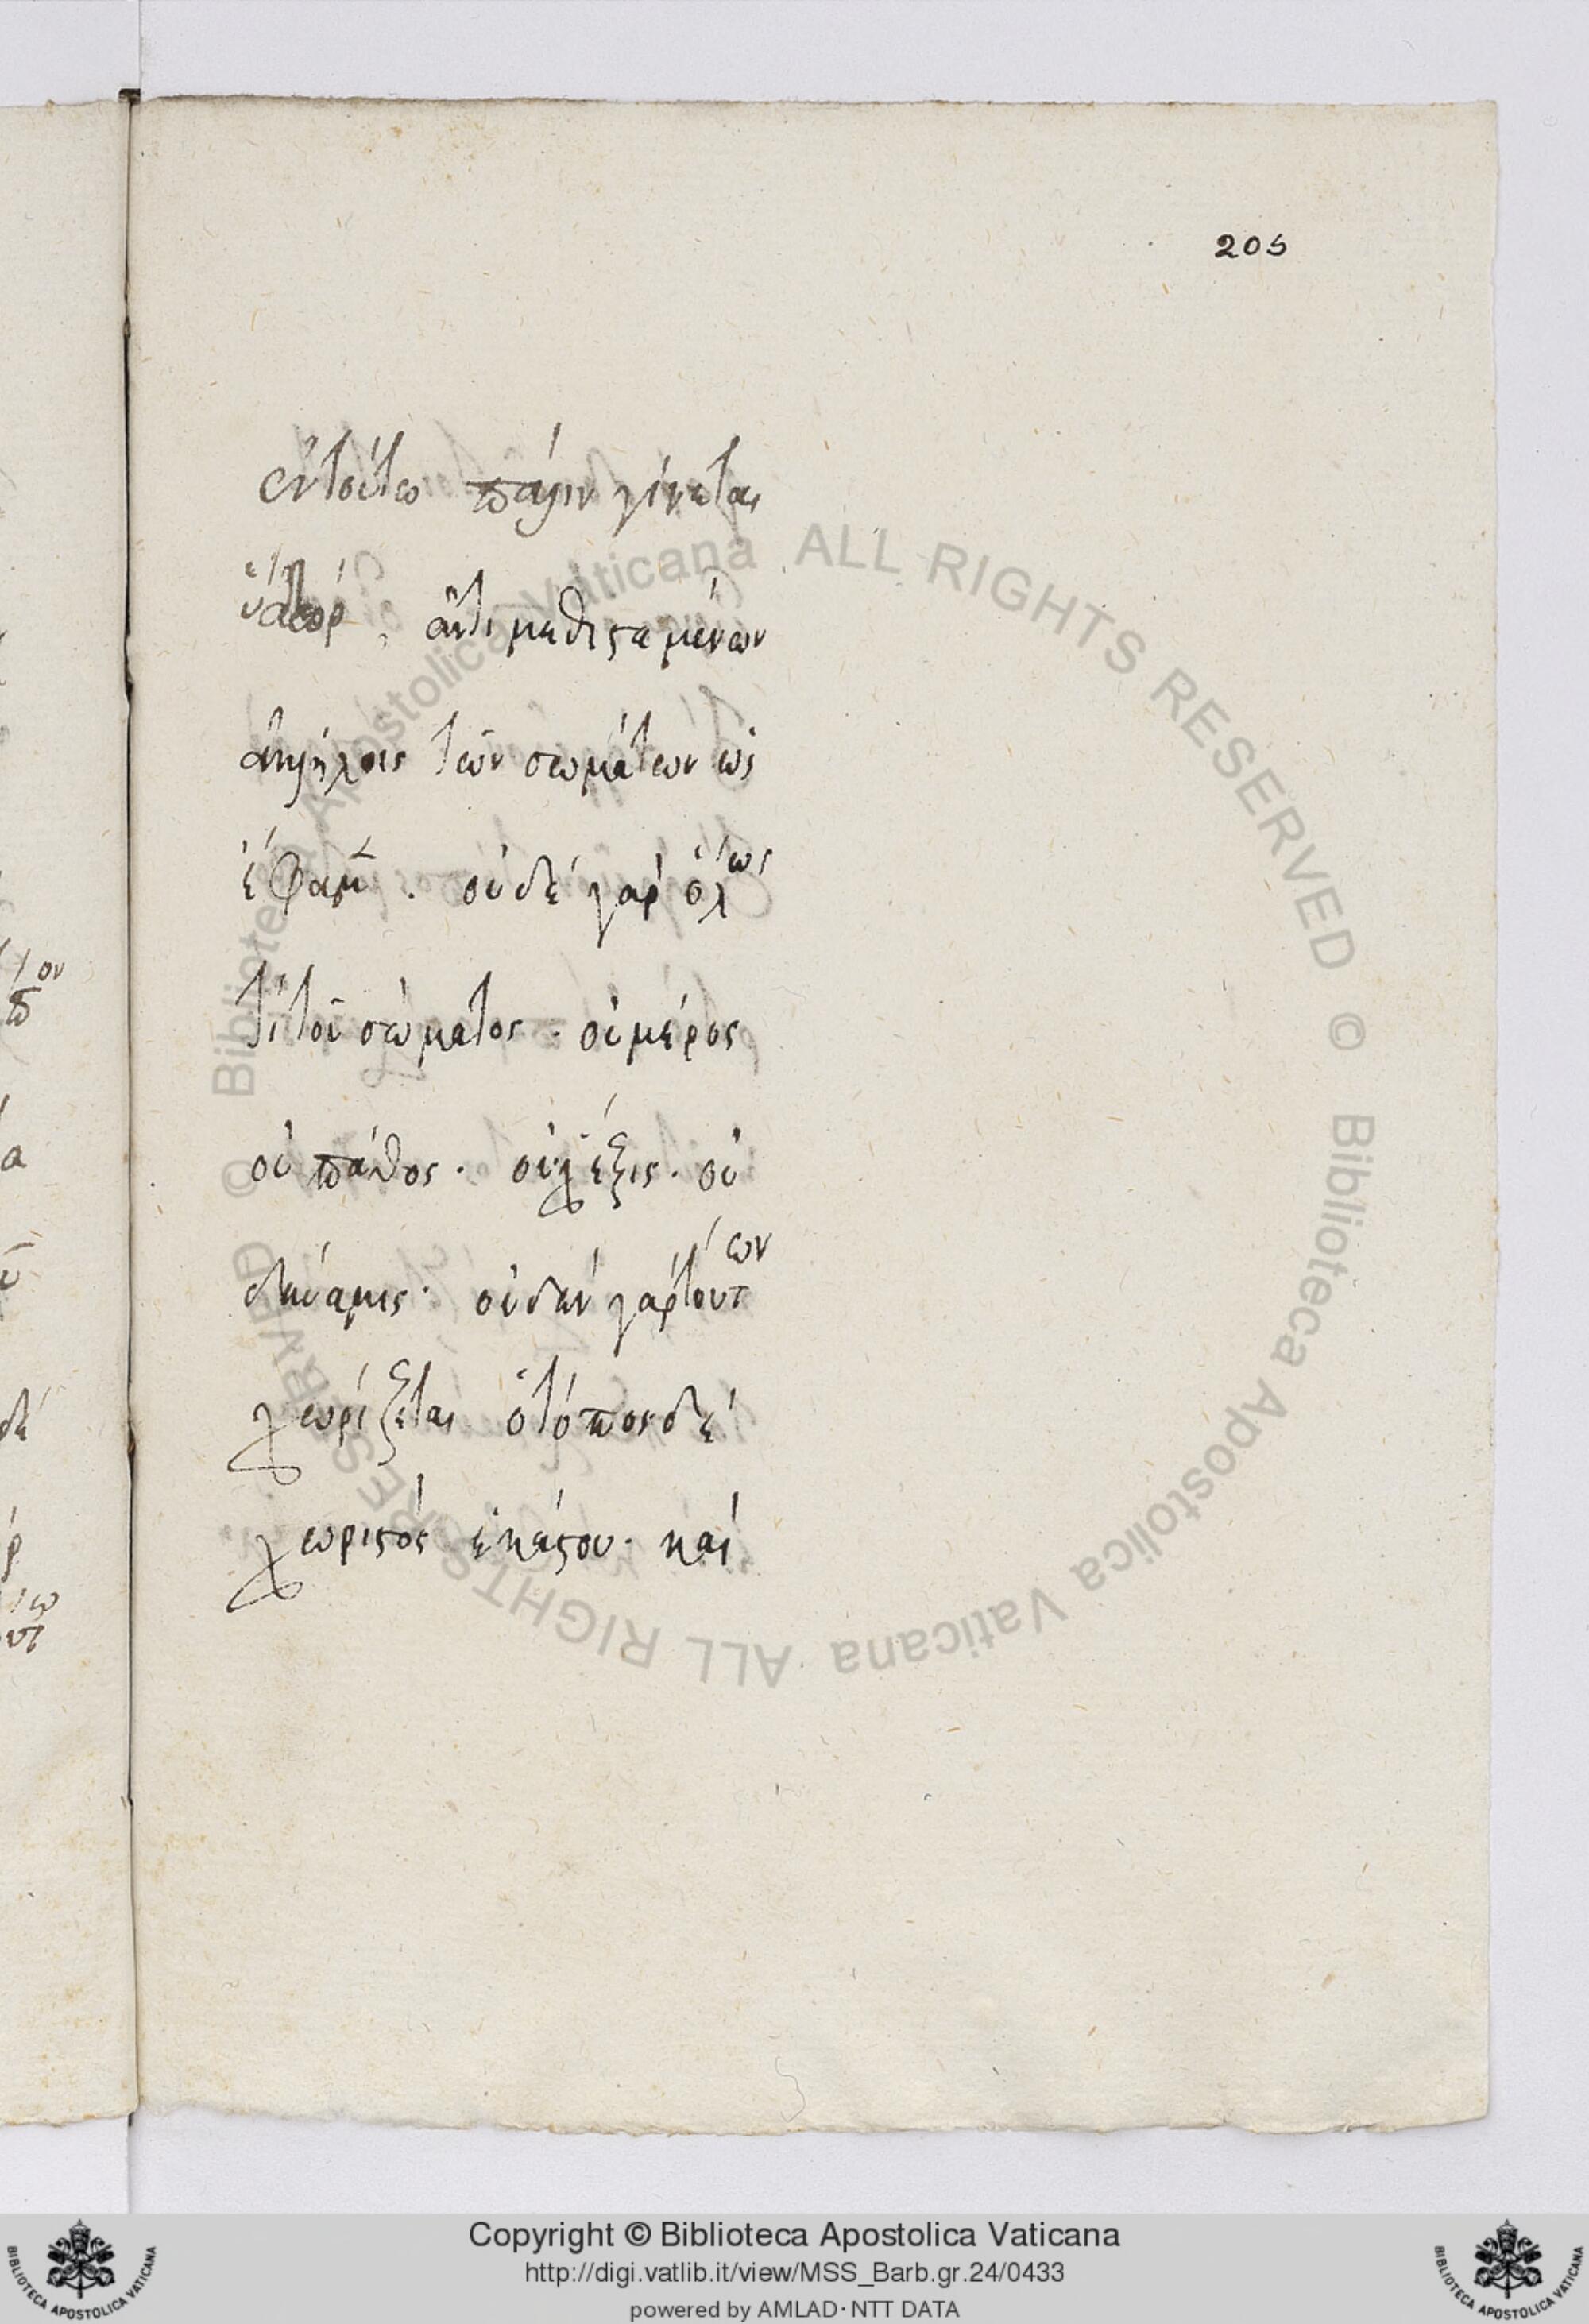 205
ἐν τούτω πάλιν γίνεται
ὕδωρ, ἀντιμεθισταμένων
ἀλλήλοις τῶν σωμάτων ὡς
ἔφαμεν. οὐδὲ γὰρ ὅλως
τί τοῦ σώματος. οὐ μέρος
οὐ πάθος. οὐχ ἕξις. οὐ
δύναμις. οὐδὲν γὰρ τούτων
χωρίζεται ὁ τόπος δὲ
χωριστὸς ἑκάστου. καὶ
ον
α
δέ
© Biblioteca Apostolica Vaticana ALL RIGHTS RESERVED © Biblioteca Apostolica Vaticana ALL RIGHTS RESERVED
Copyright © Biblioteca Apostolica Vaticana
http://digi.vatlib.it/view/MSS_Barb.gr.24/0433
powered by AMLAD · NTT DATA
BIBLIOTECA APOSTOLICA VATICANA
BIBLIOTECA APOSTOLICA VATICANA